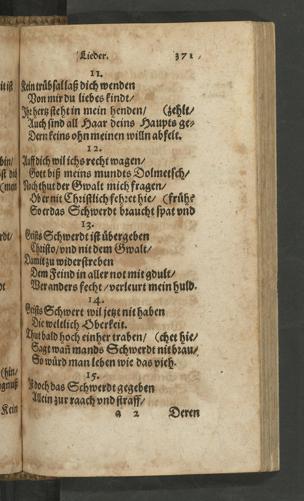 Lieder. 371.
11.
Kein trübsal laß dich wenden
Von mir du liebes kindt/
Jhr hertz steht in mein henden/ (zehlt/
Auch sind all Haar deins Haupts ge-
Dern keins ohn meinen willn abfelt.
12.
Auff dich wil ichs recht wagen/
Gott biß meins mundts Dolmetsch/
Noch thut der Gwalt mich fragen/
Ob er nit Christlich fehret hie/ (frühe
So er das Schwerdt braucht spat vnd
13.
Geists Schwerdt ist übergeben
Christo/ vnd nit dem Gwalt/
Damit zu widerstreben
Dem Feind in aller not mit gdult/
Wer anders fecht/ verleurt mein huld.
14.
Geists Schwert wil jetzt nit haben
Die weltlich Oberkeit.
Thut bald hoch einher traben/ (chet hie/
Sagt wañ mands Schwerdt nit brau-
So würd man leben wie das vieh.
15.
Jedoch das Schwerdt gegeben
Allein zur raach vnd straff/
a 2 Deren